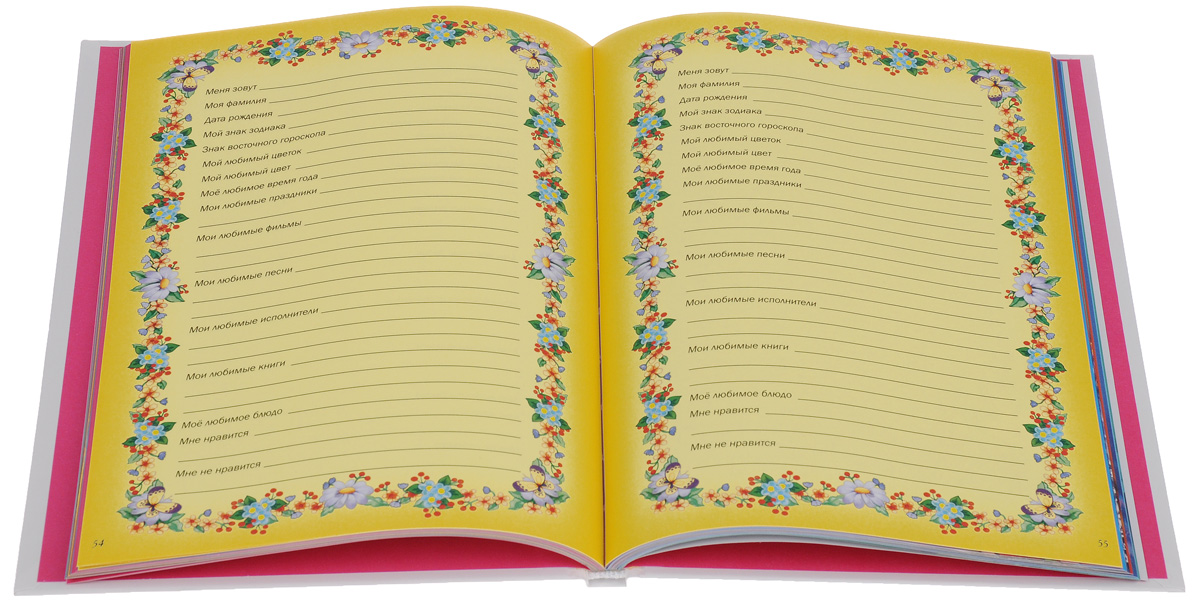 Меня зовут
Моя фамилия
Дата рождения
Мой знак зодиака
Знак восточного гороскопа
Мой любимый цветок
Мой любимый цвет
Моё любимое время года
Мои любимые праздники
Мои любимые фильмы
Мои любимые песни
Мои любимые исполнители
Мои любимые книги
Моё любимое блюдо
Мне нравится
Мне не нравится
54
Меня зовут
Моя фамилия
Дата рождения
Мой знак зодиака
Знак восточного гороскопа
Мой любимый цветок
Мой любимый цвет
Моё любимое время года
Мои любимые праздники
Мои любимые фильмы
Мои любимые песни
Мои любимые исполнители
Мои любимые книги
Моё любимое блюдо
Мне нравится
Мне не нравится
55